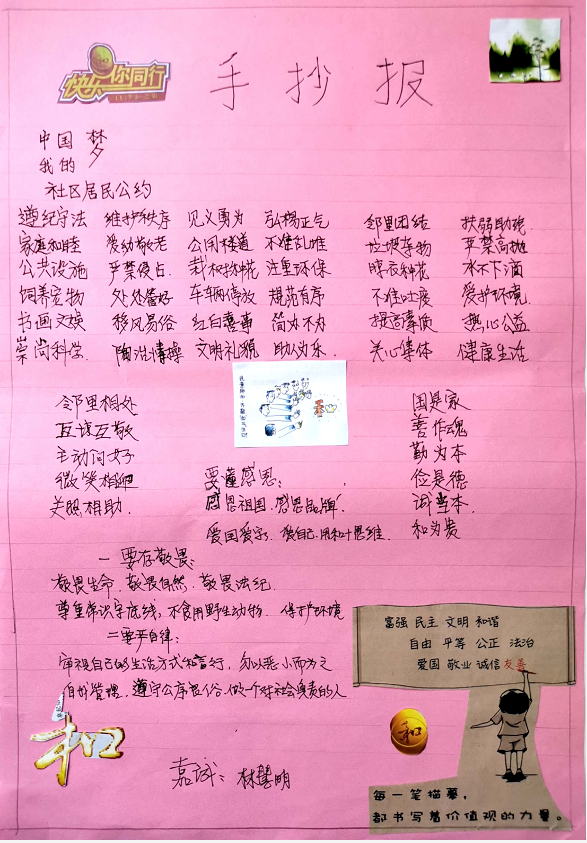 快乐你同行
手抄报
中国梦
我的
社区居民公约
遵纪守法 维护秩序 见义勇为 弘扬正气 邻里团结 扶弱助残
家庭和睦 爱幼敬老 公用楼道 不准乱堆 垃圾弃物 严禁高抛
公共设施 严禁侵占 栽树种花 注重环保 晾衣种花 水不下滴
饲养宠物 处处管好 车辆停放 规范有序 不准吐痰 爱护环境
书画文娱 移风易俗 红白喜事 简办不为 提高素质 热心公益
崇尚科学 陶冶情操 文明礼貌 助人为乐 关心集体 健康生活
邻里相处
互谅互敬
主动问好
微笑相迎
关照相助
国是家
善作魂
勤为本
俭是德
诚当本
和为贵
要懂感恩:
感恩祖国.感恩
爱国爱家.
一要存敬畏:
敬畏生命.敬畏自然.敬畏法纪.
尊重常识守底线,不食用野生动物.保护环境
二要严自律:
审视自己的生活方式和言行,勿以恶小而为之
自我管理,遵守公序良俗.做一个对社会负责的人
和
嘉诚:林慧明
和
富强 民主 文明 和谐
自由 平等 公正 法治
爱国 敬业 诚信 友善
每一笔描摹,
都书写着价值观的力量。